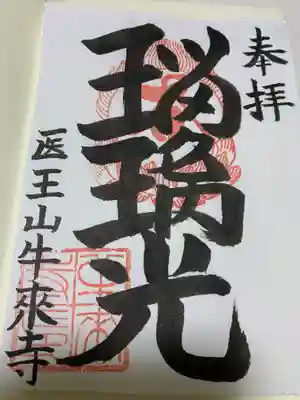 奉拝
瑠璃光
医王山牛來寺